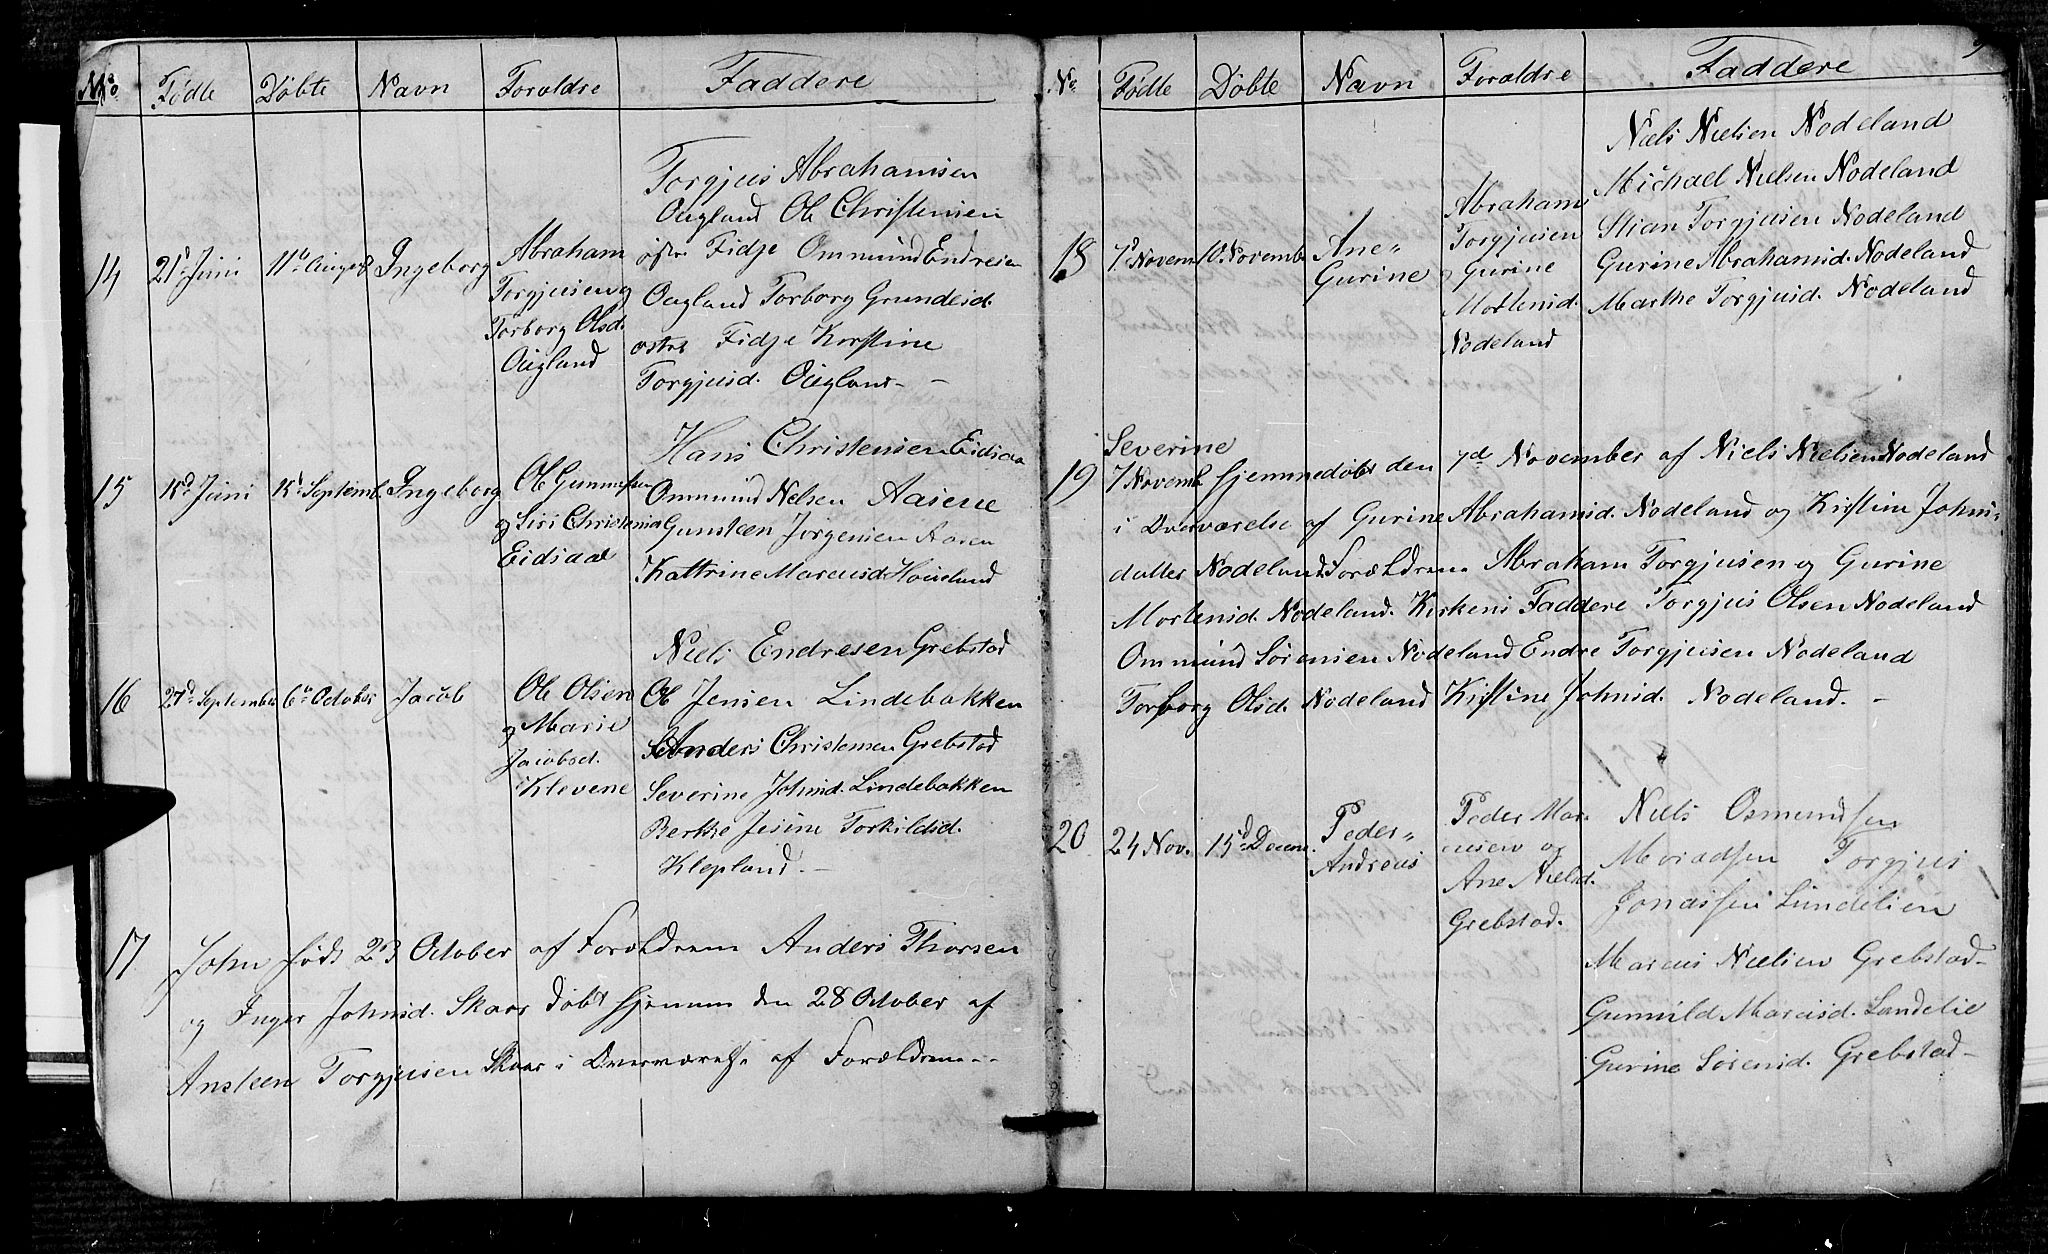 No Fødte Døbte Navn Forældre Faddere
14 21d Juni 11te August Ingeborg
Abraham
Torgjusen og
Torborg Olsd.
Ougland
Torgjus Abrahamsen
Ougland Ole Christensen
østre Fidje Ommund Endresen
Ougland Torborg Grundesd.
østre Fidje Kirstine
Torgjusd. Ougland
15 18d Juni 15d Septemb. Ingeborg
Ole Gunnsteen
og Siri Christensd
Eidsaae
Hans Christensen Eidsaa
Ommund Nelsen Aasene
Gunsteen Jørgensen Aasen
Kattrine Marcusd Houeland
16 27d September 6te October Jacob
Ole Olsen
og Marie
Jacobsd.
Klevene
Niels Endresen Grebstad
Ole Jensen Lindebakken
Anders Christensen Grebstad
Severine Johnsd. Lindebakken
Berthe Jesine Torkildsd.
Klepland.
17 John født 23 October af Forældrene Anders Thorsen
og Inger Johnsd. Skaar døbt hjemme den 28 October af
Ansteen Torgjusen Skaar i Overværelse af Forældrene
No Fødte Døbte Navn Forældre Faddere 9
18 7d Novem 10. Novembr Ane-
Gurine
Abraham
Torgjusen
og Gurine
Mortensd.
Nodeland
Niels Nielsen Nodeland
Michael Nielsen Nodeland
Stian Torgjusen Nodeland
Gurine Abrahamsd. Nodeland
Marthe Torgjusd. Nodeland
Severine
19 7 Novemb hjemmedøbt den 7de November af Niels Nielsen Nodeland
i Overværelse af Gurine Abrahamsd. Nodeland og Kirstine Johns-
datter Nodeland. Forældrene Abraham Torgjusen og Gurine
Mortensd. Nodeland. Kirkens Faddere Torgjus Olsen Nodeland
Ommund Sørensen Nodeland Endre Torgjusen Nodeland
Torborg Olsd. Nodeland Kirstine Johnsd. Nodeland. -
20 24 Nov. 15d Decem. Peder-
Andreas
Peder Mar-
cusen og
Ane Nielsd.
Grebstad.
Niels Osmundsen
Torgjus
Jonassen Lundelien
Marcus Nielsen Grebstad-
Gunnild Marcusd. Lundelie
Gurine Sørensd. Grebstad-